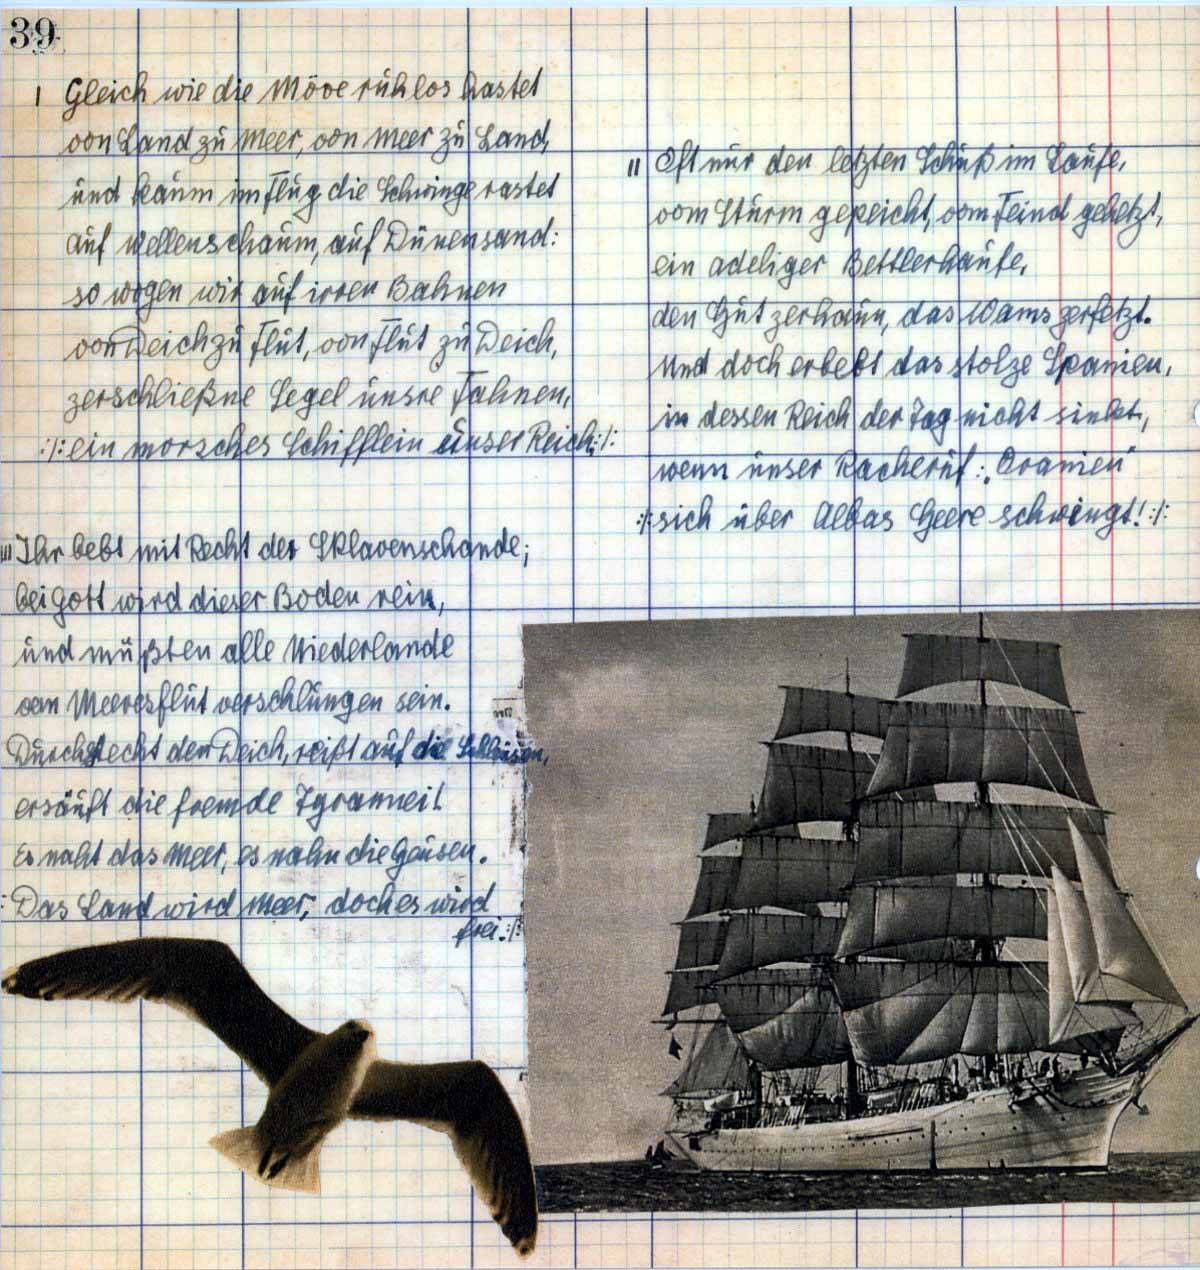 39
I Gleich wie die Möve ruhlos hastet
von Land zu Meer, von Meer zu Land,
und kaum im Flug die Schwinge rastet
auf Wellenschaum, auf Dünensand:
so wogen wir auf irren Bahnen
von Deich zu Flut, von Flut zu Deich,
zerschließne Segel unsre Fahnen,
:/: ein morsches Schifflein unser Reich. :/:
II Oft nur den letzten Schuß im Laufe,
vom Sturm gepeicht, vom Feind gehetzt,
ein adeliger Bettlerhaufe,
den Hut zerhaun, das Wams zerfetzt.
Und doch erbebt das stolze Spanien,
in dessen Reich der Tag nicht sinkt,
wenn unser Racheruf: „Oranien"
:/: sich über Albas Heere schwingt! :/:
III Ihr bebt mit Recht der Sklavenschande;
bei Gott wird dieser Boden rein,
und müßten alle Niederlande
von Meeresflut verschlungen sein.
Durchstecht den Deich, reißt auf die Schleusen,
ersäuft die fremde Tyrannei!
Es naht das Meer, es nahn die Geusen.
: Das Land wird Meer, doch es wird
frei. :/: